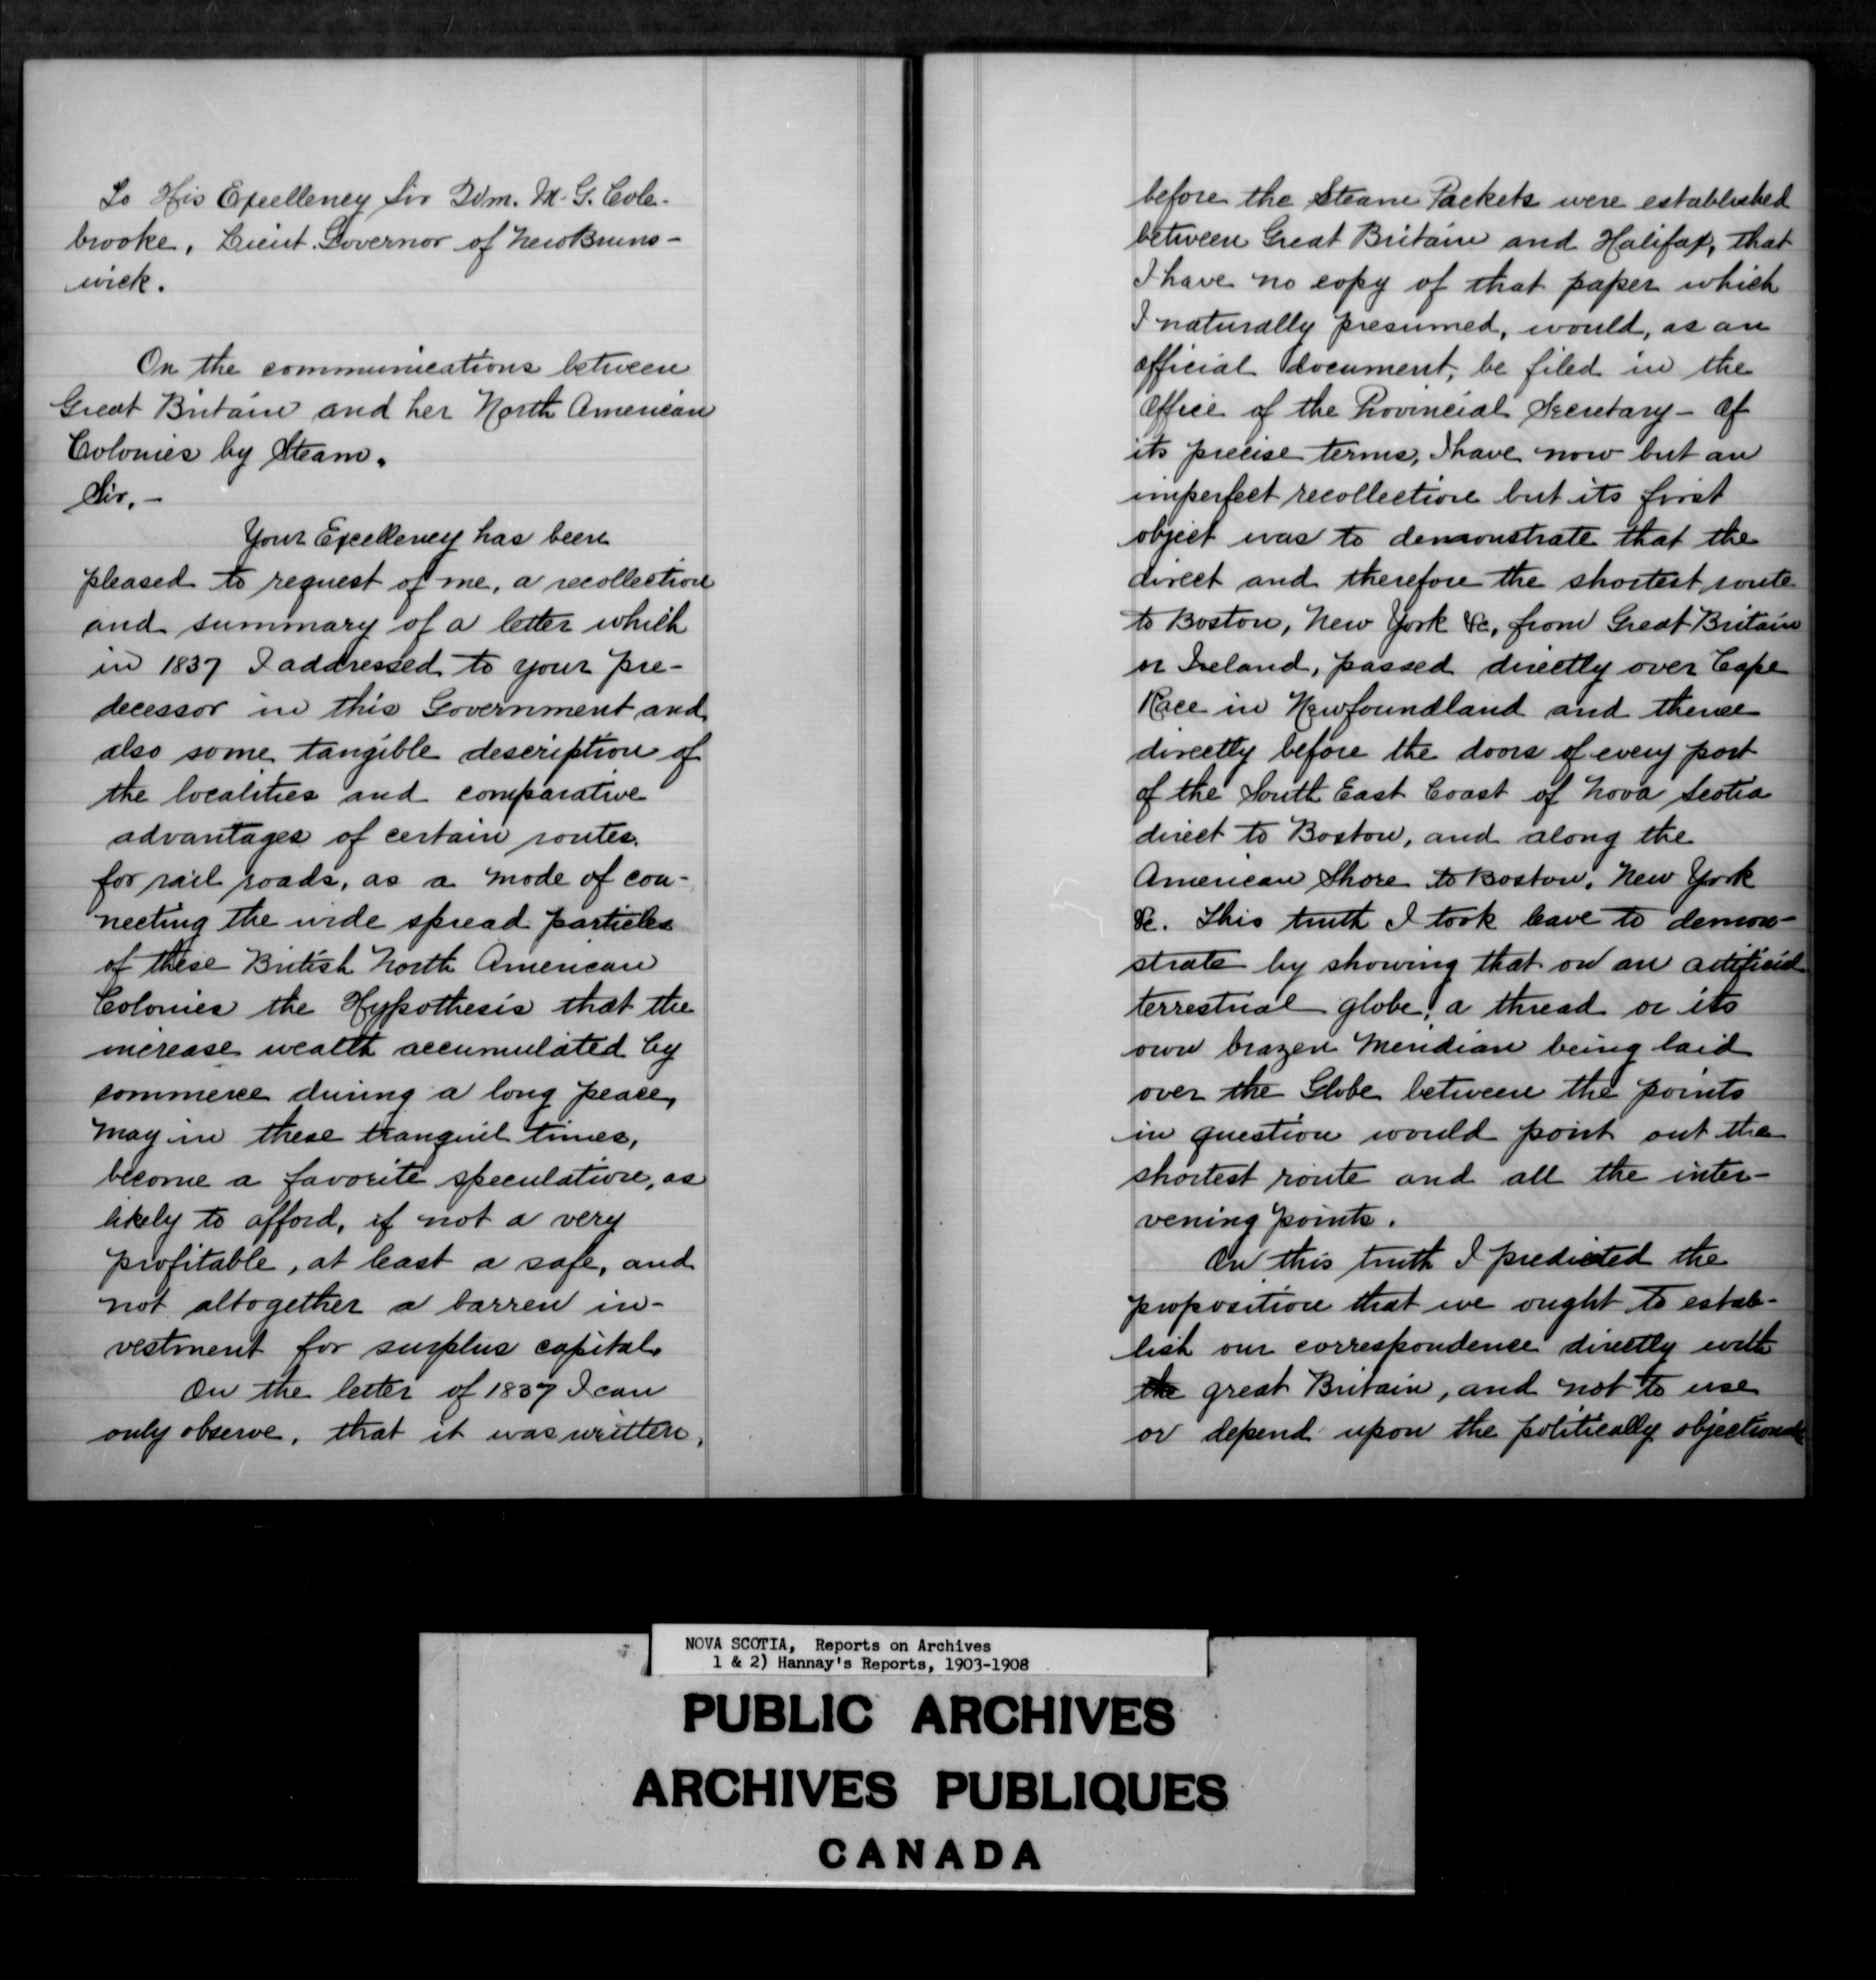 To His Excellency Sir Wm. M. G. Cole-
brooke, Lieut. Governor of New Bruns-
wick.
On the communications between
Great Britain and her North American
Colonies by Steam.
Sir,-
Your Excellency has been
pleased to request of me, a recollection
and summary of a letter which
in 1837 I addressed to your pre-
decessor in this Government and
also some tangible description of
the localities and comparative
advantages of certain routes
for rail roads, as a mode of con-
necting the wide spread particles
of these British North American
Colonies the Hypothesis that the
increase wealth accumulated by
commerce during a long peace,
may in these tranquil times,
become a favorite speculation, as
likely to afford, if not a very
profitable, at least a safe, and
not altogether a barren in-
vestment for surplus capital.
On the letter of 1837 I can
only observe, that it was written,
before the Steam Packets were established
between Great Britain and Halifax, that
I have no copy of that paper which
I naturally presumed, would, as an
official document, be filed in the
Office of the Provincial Secretary - Of
its precise terms, I have now but an
imperfect recollection but its first
object was to demonstrate that the
direct and therefore the shortest route
to Boston, New York &c, from Great Britain
or Ireland, passed directly over Cape
Race in Newfoundland and thence
directly before the doors of every port
of the South East Coast of Nova Scotia
direct to Boston, and along the
American Shore to Boston, New York
&c. This truth I took leave to demon-
strate by showing that on an artificial
terrestrial globe, a thread or its
own brazen Meridian being laid
over the Globe between the points
in question would point out the
shortest route and all the inter-
vening points.
On this truth I predicted the
proposition that we ought to estab-
lish our correspondence directly with
the great Britain, and not to use
or depend upon the politically objectionable
NOVA SCOTIA, Reports on Archives
1 & 2) Hannay's Reports, 1903-1908
PUBLIC ARCHIVES
ARCHIVES PUBLIQUES
CANADA